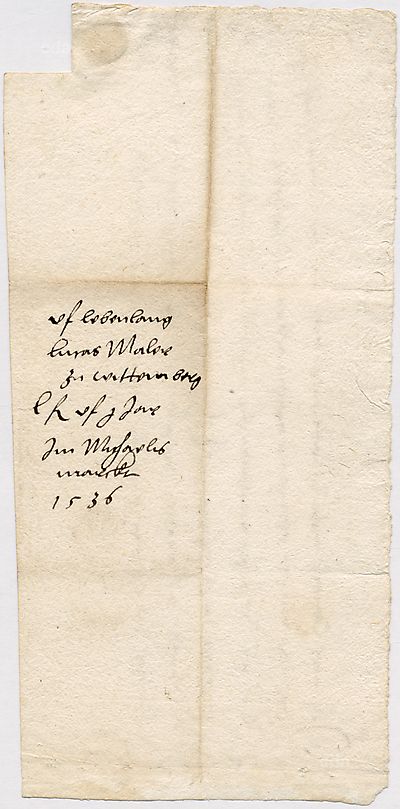 vf lebenlang
lucas Maler
zu wittemberg
l fl vf j Jar
Im Michaelis
marckt
1536